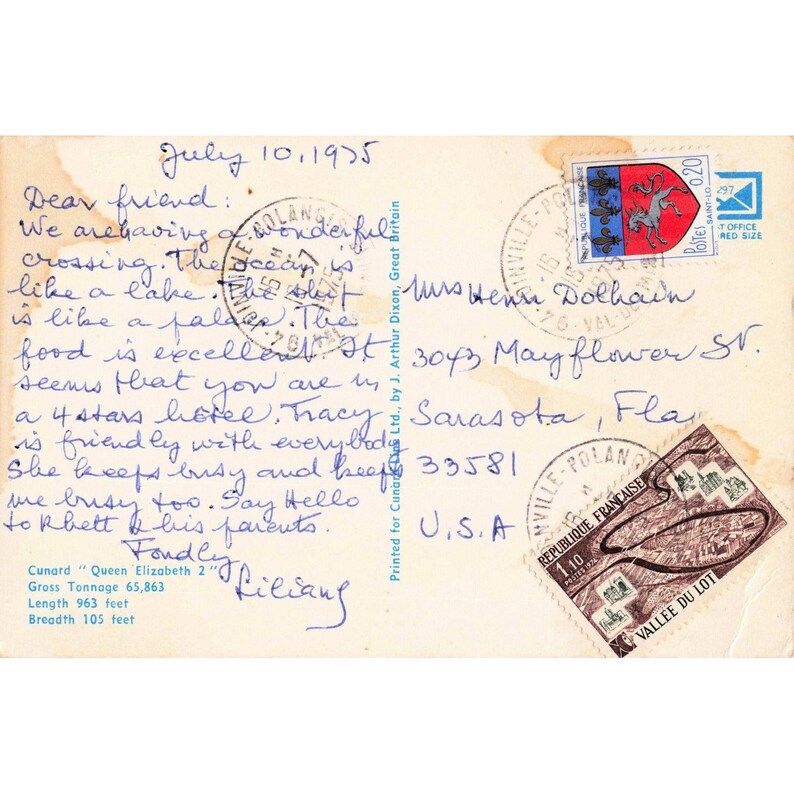 July 10, 1975
Dear friend:
We are having a wonderful
crossing. The ocean is
like a lake. The ship
is like a palace. The
food is excellent. It
seems that you are in
a 4 stars hôtel. Tracy
is friendly with everybody
She keeps busy and keeps
me busy too. Say Hello
to Rhett & his parents.
Fondly
Liliane
Cunard "Queen Elizabeth 2"
Gross Tonnage 65,863
Length 963 feet
Breadth 105 feet
Printed for Cunard Line Ltd., by J. Arthur Dixon, Great Britain
JOINVILLE-POLANGIS
15 H
15-7
1975
94 VAL-DE-MARNE
REPUBLIQUE FRANÇAISE
0,20
POSTES
SAINT-LO
297
POST OFFICE
PREFERRED SIZE
JOINVILLE-POLANGIS
15 H
15-7
1975
94 VAL-DE-MARNE
Mrs Henri Dolhain
3043 Mayflower St.
Sarasota, Fla
33581
U.S.A
JOINVILLE-POLANGIS
REPUBLIQUE FRANÇAISE
1,10
POSTES 1974
VALLEE DU LOT